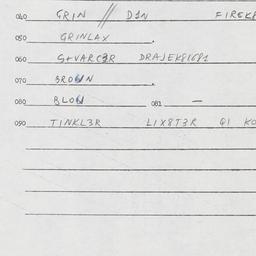 040 GRIN // D1N FIREK8
050 GRINLAX
060 S+VARC3R DRAJEK81681
070 BROWN
080 BLOW 081 —
090 TINKL3R L1X8T3R Q1 KO